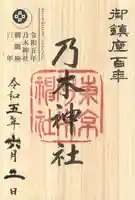 御鎮座百年
令和五年
乃木神社
御鎮座
百年
乃木神社
東京
令和五年六月二日